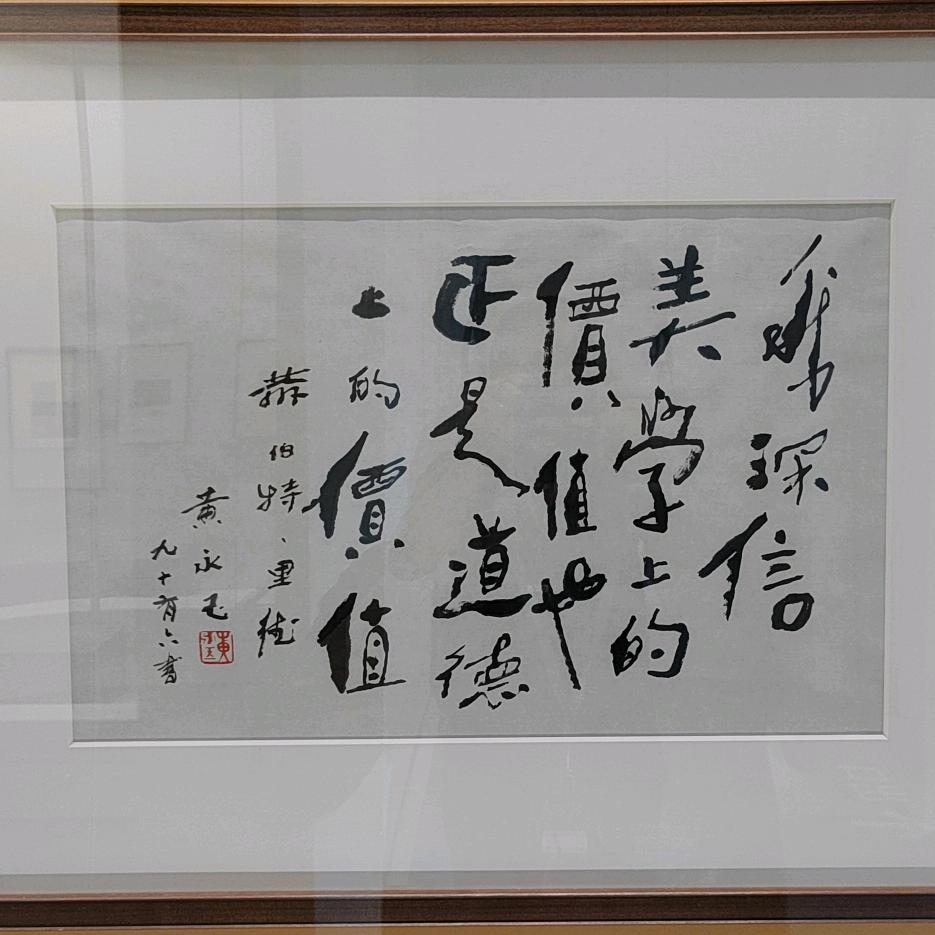 我深信
美學上的
價值也
正是道德
上的價值
赫伯特、里德
黃永玉
九十有六書